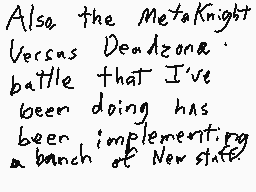 Also the MetaKnight
Versus Deadzone.
battle that I've
been doing has
been implementing
a banch of New stuff.